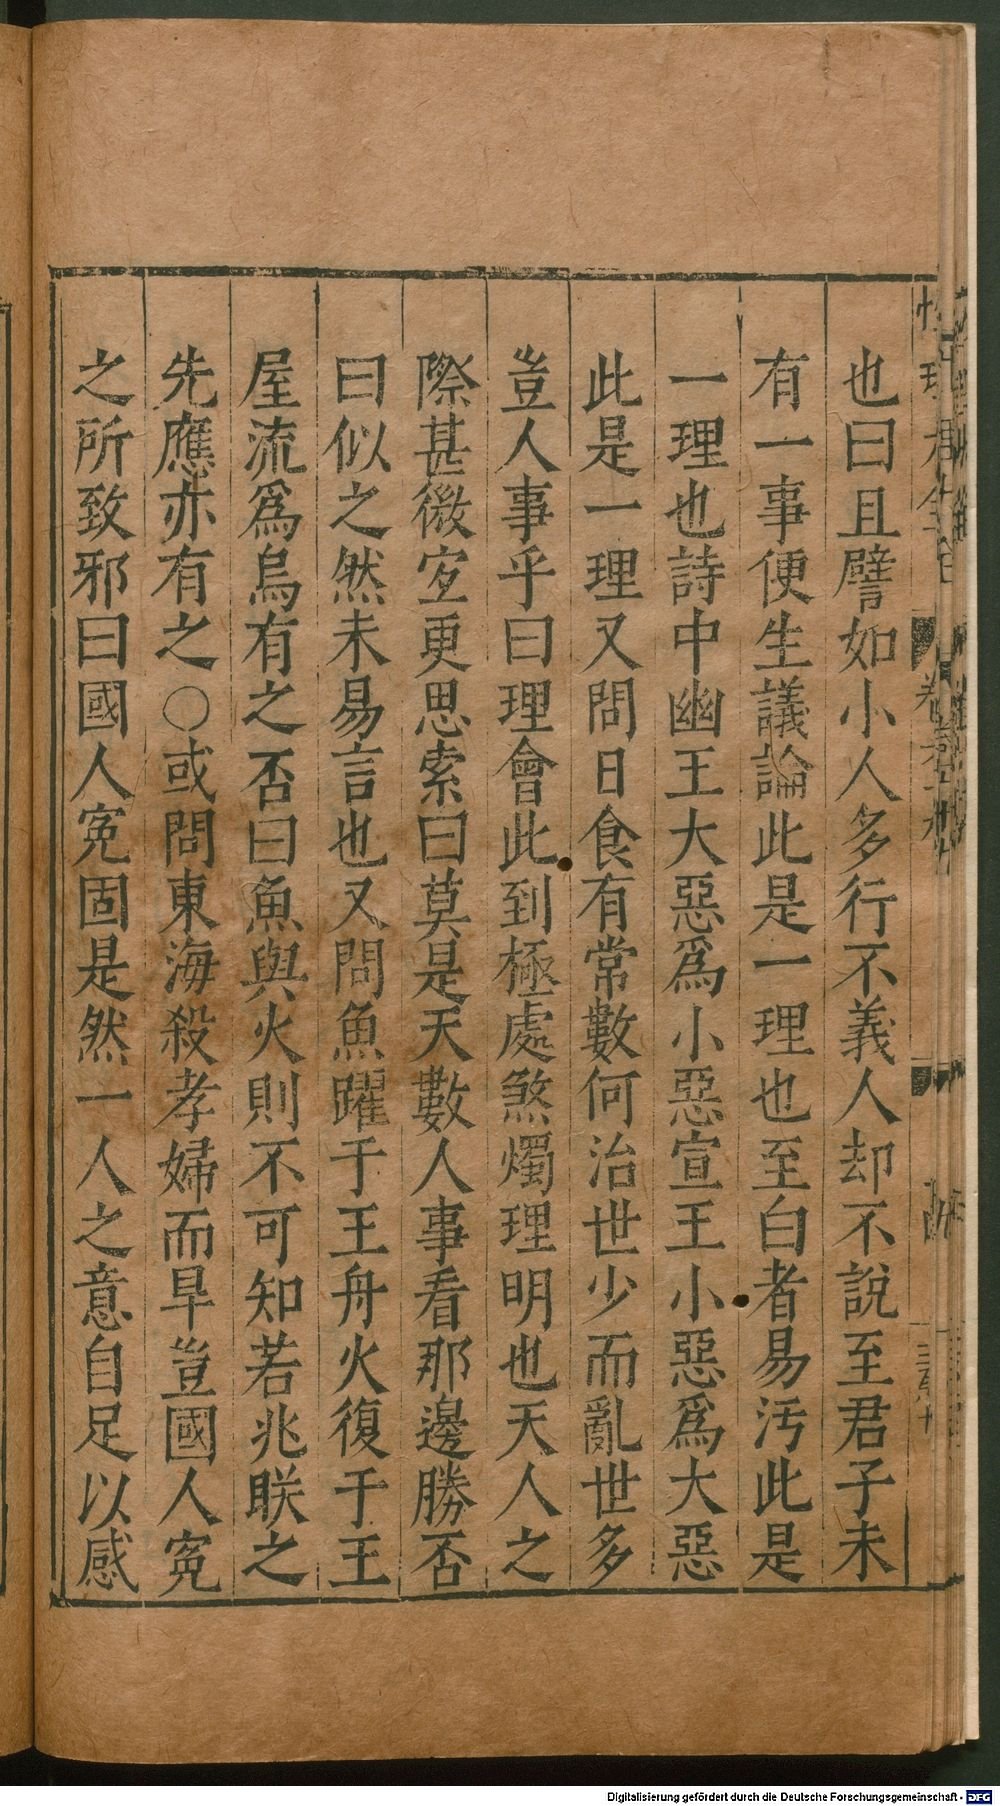 也曰且譬如小人多行不義人却不說至君子未
有一事便生議論此是一理也至白者易汚此是
一理也詩中幽王大惡爲小惡宣王小惡爲大惡
此是一理又問日食有常數何治世少而亂世多
豈人事乎曰理會此到極處煞燭理明也天人之
際甚微宐更思索曰莫是天數人事看那邊勝否
曰似之然未易言也又問魚躍于王舟火復于王
屋流爲烏有之否曰魚與火則不可知若兆朕之
先應亦有之○或問東海殺孝婦而旱豈國人寃
之所致邪曰國人寃固是然一人之意自足以感
Digitalisierung gefördert durch die Deutsche Forschungsgemeinschaft - DFG